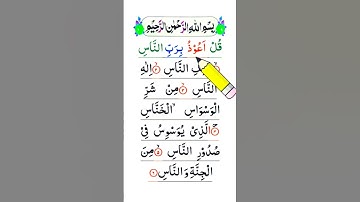 بِسْمِ اللهِ الرَّحْمٰنِ الرَّحِيْمِ
قُلْ اَعُوْذُ بِرَبِّ النَّاسِ
النَّاسِ ۙ اِلٰهِ
النَّاسِ ۙ مِنْ شَرِّ
الْوَسْوَاسِ ۙ الْخَنَّاسِ
الَّذِىْ يُوَسْوِسُ فِىْ
صُدُوْرِ النَّاسِ ۙ مِنَ
الْجِنَّةِ وَالنَّاسِ